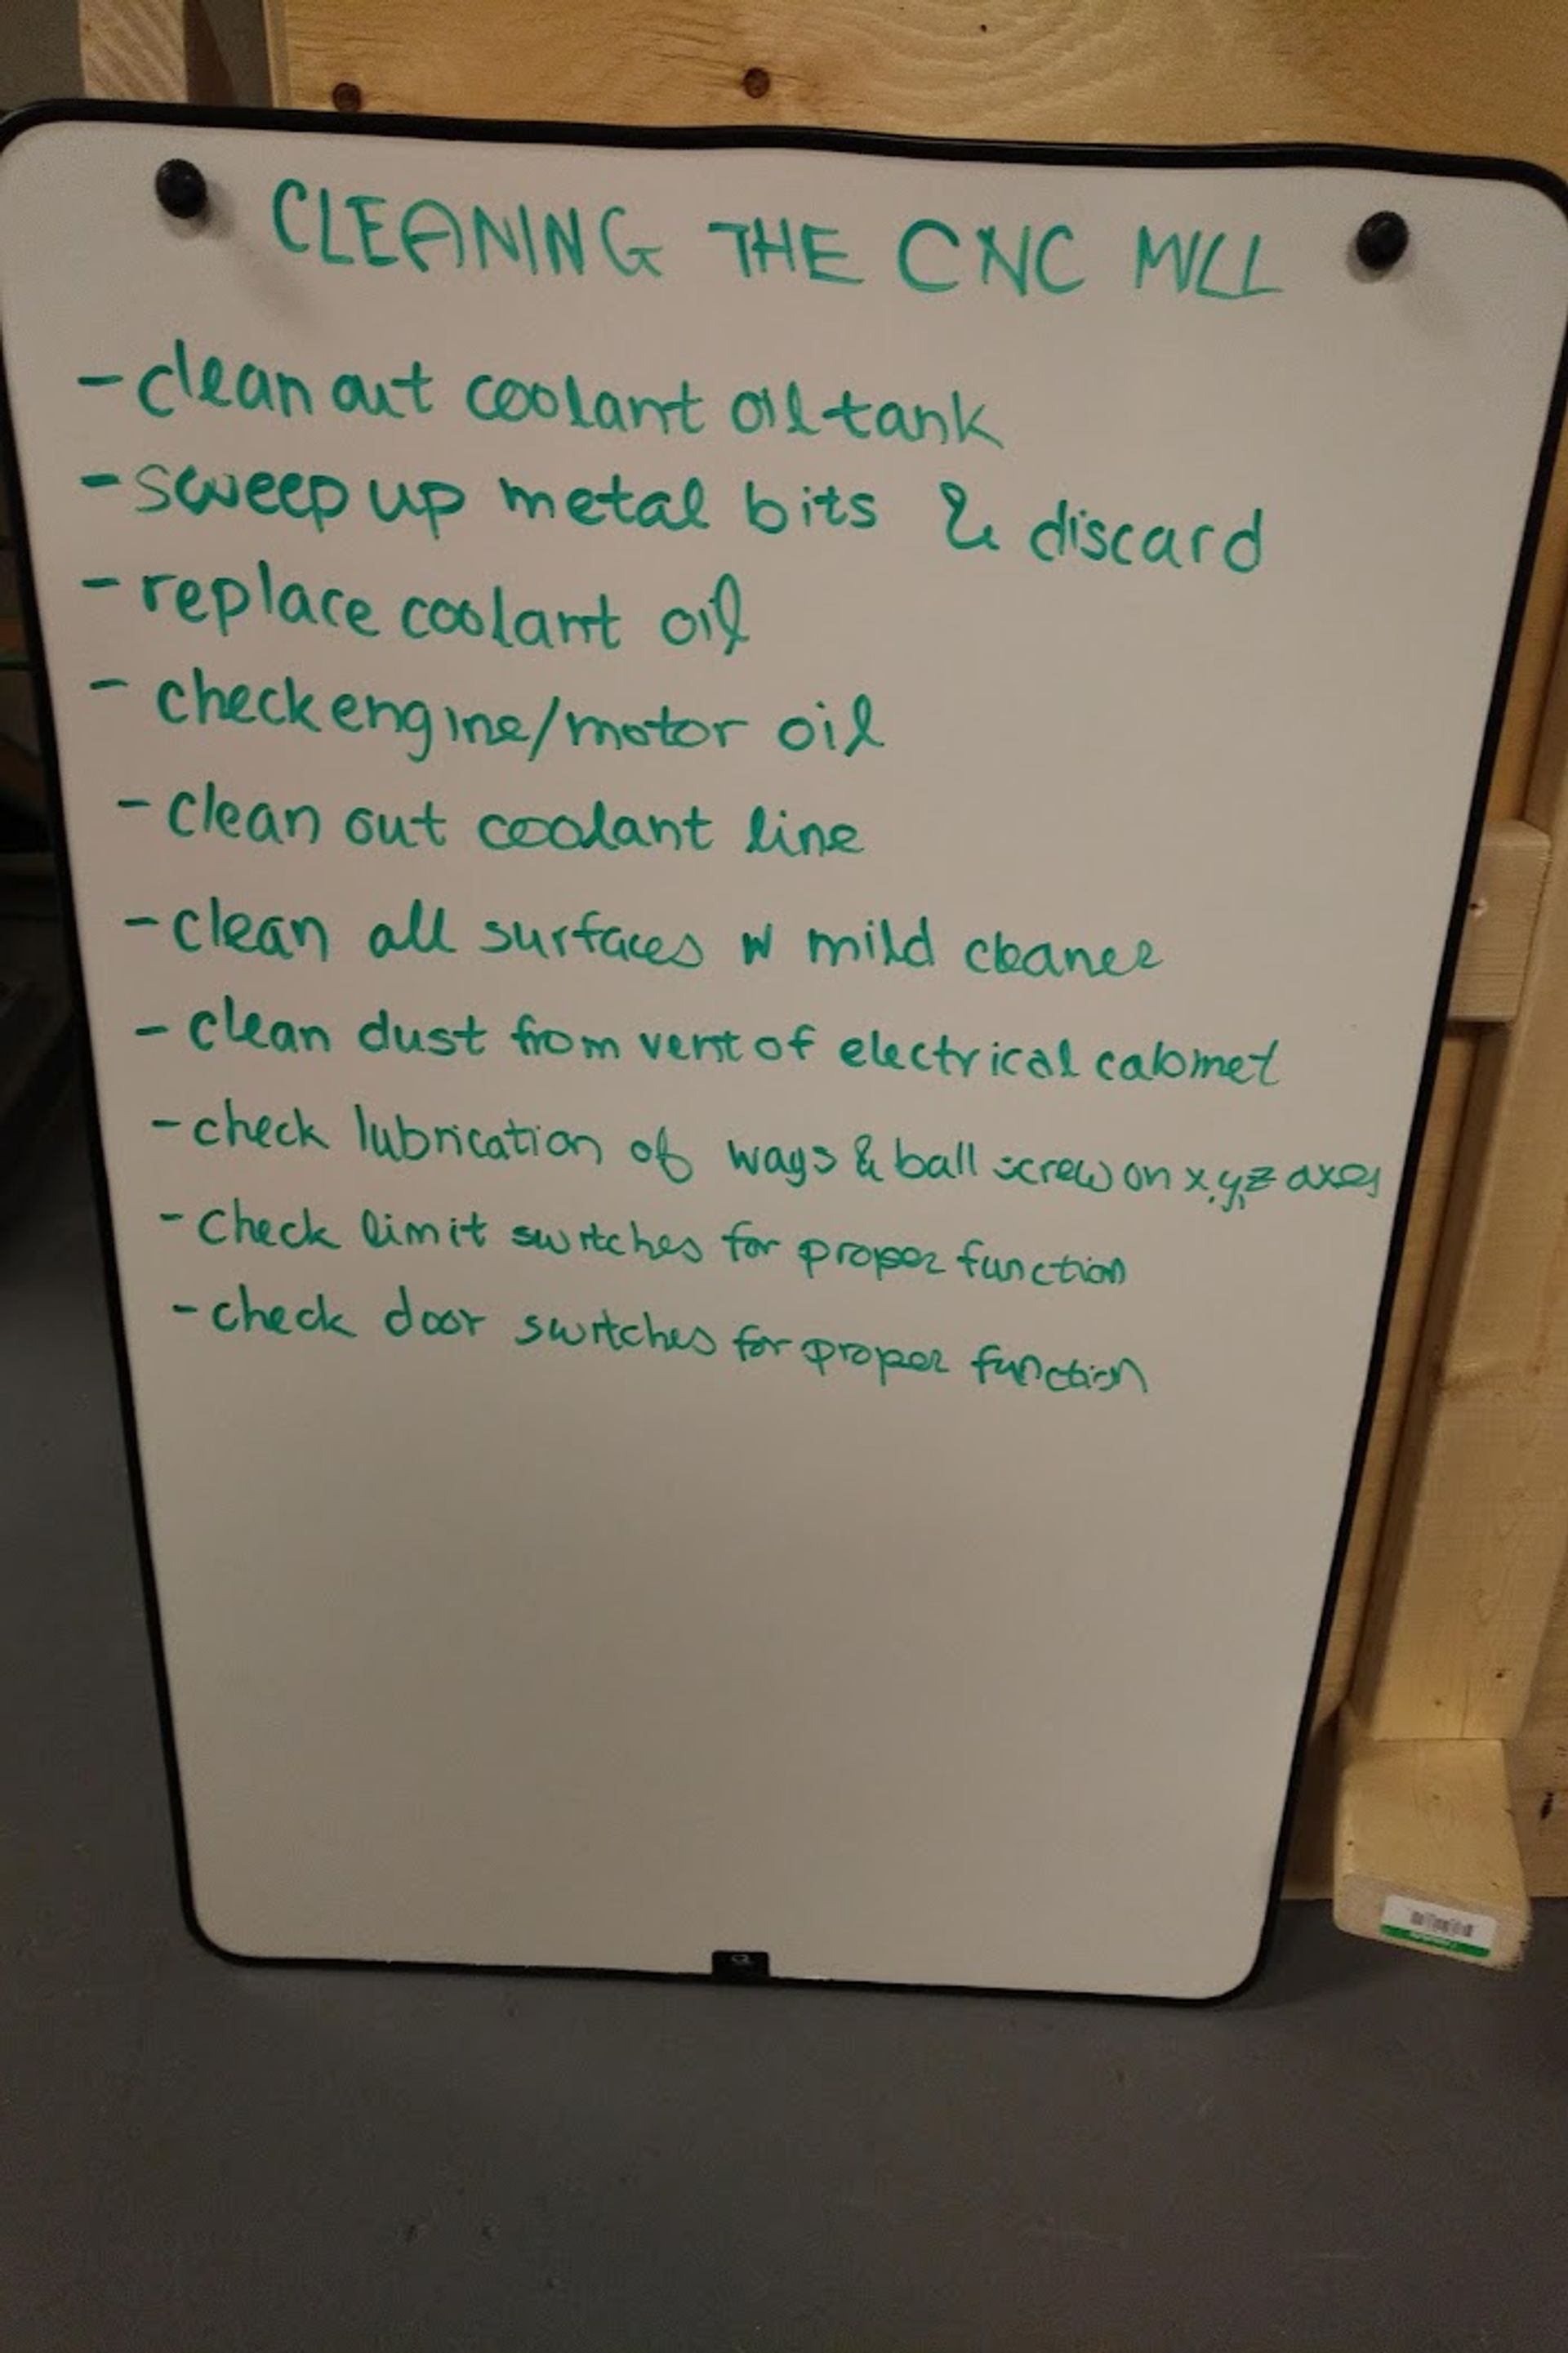 CLEANING THE CNC MILL
- clean out coolant oil tank
- sweep up metal bits & discard
- replace coolant oil
- check engine/motor oil
- clean out coolant line
- clean all surfaces w mild cleaner
- clean dust from vent of electrical cabinet
- check lubrication of ways & ball screw on x,y,z axes
- check limit switches for proper function
- check door switches for proper function